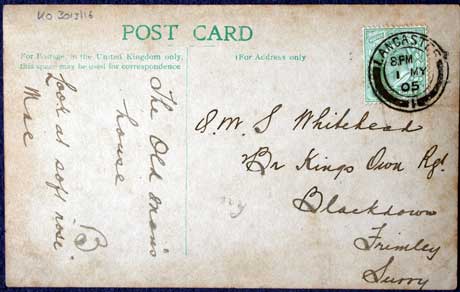 KO 3013/16
POST CARD
For Postage, in the United Kingdom only,
this space may be used for correspondence
(For Address only)
LANCASTER
8 PM
1 MY
05
The Old Man's
house
Look at soft nose
Mac
B
Q.M.S Whitehead
Br Kings Own Rgt
Blackdown
Frimley
Surry